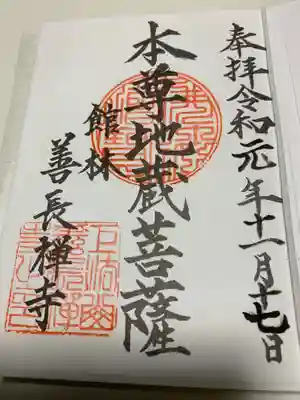 奉拝令和元年十一月十七日
本尊地蔵菩薩
館林
善長禅寺